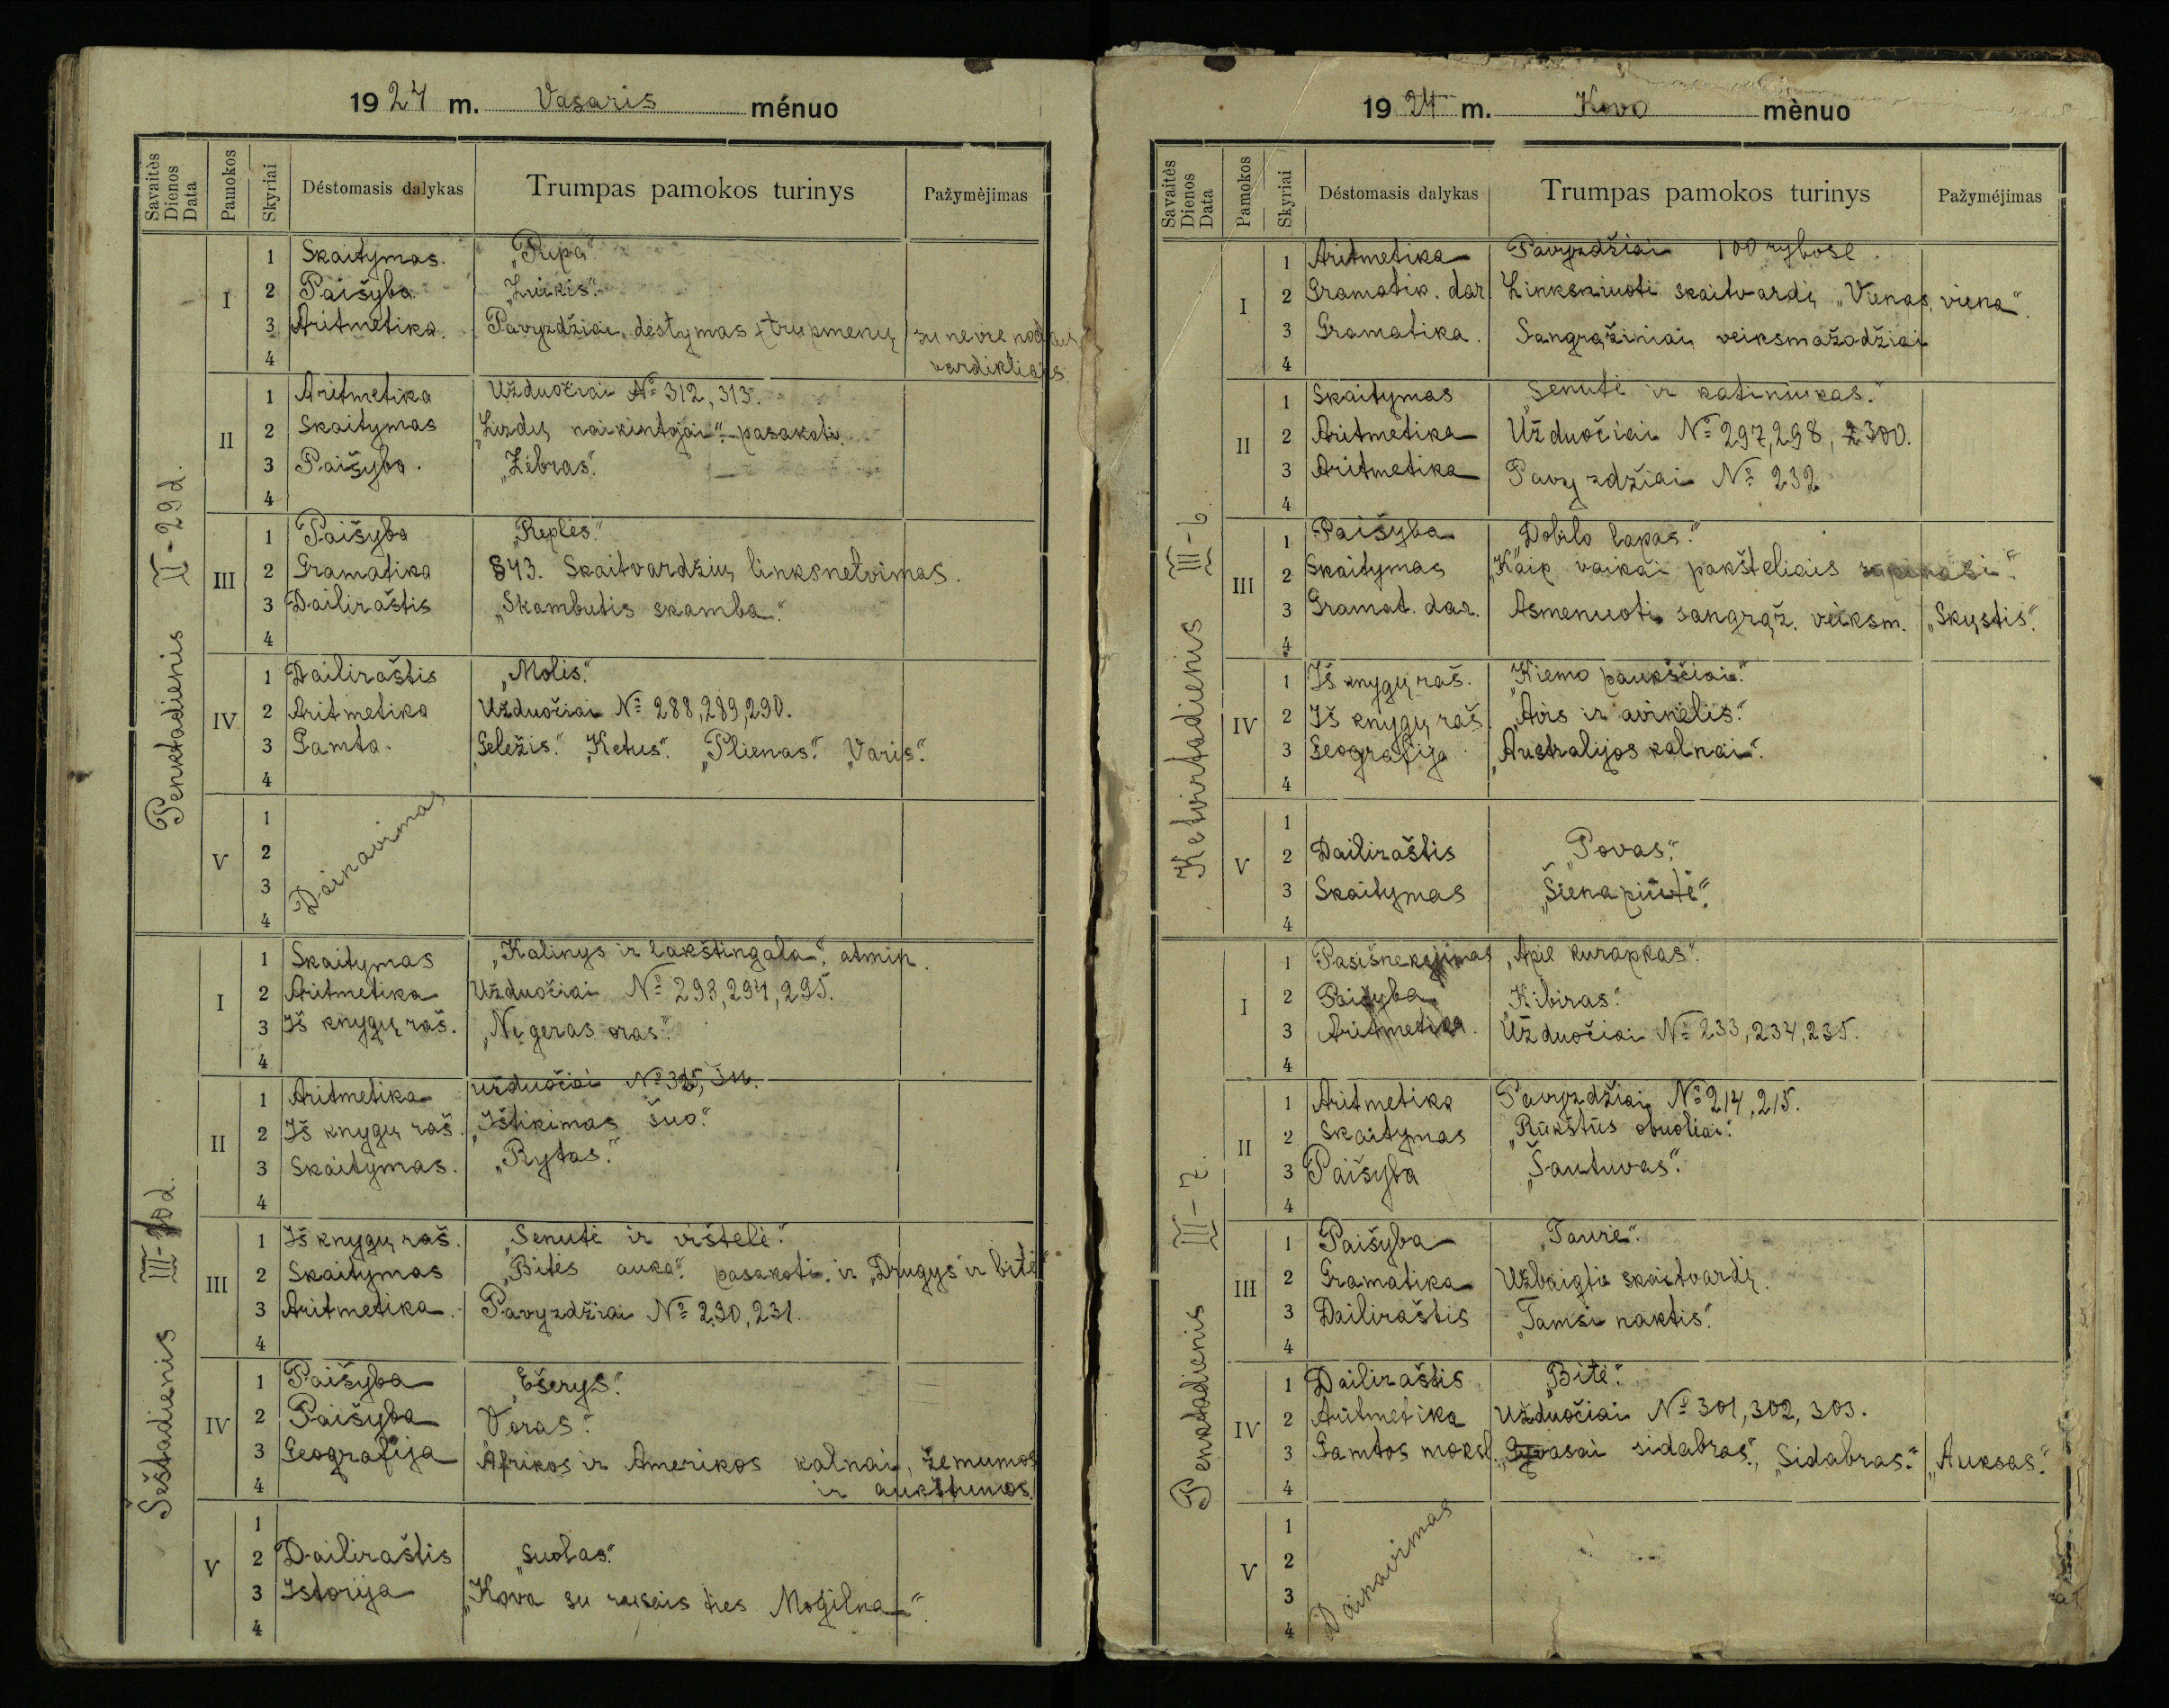 1924 m. Vasaris ménuo
Savaitės Dienos Data Pamokos Skyriai Déstomasis dalykas Trumpas pamokos turinys Pažymėjimas
Penktadienis II-29 d.
I
1 Skaitymas. „Ropa“.
2 Paišyba „Zuikis“.
3 Aritmetika. Pavyzdžiai, dėstymas trupmenų su nevienodais
4 vardikliais.
II
1 Aritmetika Užduočiai № 312, 313.
2 Skaitymas „Lizdų naikintojai“ pasakoti.
3 Paišyba. „Zebras“.
4
III
1 Paišyba „Replės“.
2 Gramatika §43. Skaitvardžių linksnetvimas.
3 Dailiraštis „Skambutis skamba“.
4
IV
1 Dailiraštis „Molis“.
2 Aritmetika Užduočiai № 288, 289, 290.
3 Gamta. „Geležis“. „Ketus“. „Plienas“. „Varis“.
4
V
1
2 Dainavimas
3
4
Šeštadienis III- d.
I
1 Skaitymas „Kalinys ir lakštingala“, atmin.
2 Aritmetika Užduočiai № 293, 294, 295.
3 Iš knygų raš. „Negeras oras“.
4
II
1 Aritmetika Užduočiai №
2 Iš knygų raš. „Ištikimas šuo“.
3 Skaitymas. „Rytas“.
4
III
1 Iš knygų raš. „Senutė ir vištelė“.
2 Skaitymas „Bitės auka“. pasakoti. ir „Drugys ir bitė“
3 Aritmetika. Pavyzdžiai № 230, 231.
4
IV
1 Paišyba „Ešerys“.
2 Paišyba „Voras“.
3 Geografija Afrikos ir Amerikos kalnai, žemumos
4 ir aukštumos.
V
1
2 Dailiraštis „Suolas“.
3 Istorija „Kova su rusais ties Mogilna“.
4
1924 m. Kovo mènuo
Savaitės Dienos Data Pamokos Skyriai Déstomasis dalykas Trumpas pamokos turinys Pažyméjimas
Ketvirtadienis III-6.
I
1 Aritmetika Pavyzdžiai 100 rybose.
2 Gramatik. dar. Linksniuoti skaitvardį „Vienas, viena“.
3 Gramatika. Sangrąžiniai veiksmažodžiai
4
II
1 Skaitymas „Senutė ir katiniukas“.
2 Aritmetika Užduočiai № 297, 298, 300.
3 Aritmetika Pavyzdžiai № 232
4
III
1 Paišyba „Dobilo lapas“.
2 Skaitymas „Kaip vaikai pakšteliais
3 Gramat. dar. Asmenuoti sangrąž. veiksm. „Skųstis“.
4
IV
1 Iš knygų raš. „Kiemo paukščiai“.
2 Iš knygų raš. „Avis ir avinėlis“.
3 Geografija „Australijos kalnai“.
4
V
1
2 Dailiraštis „Povas“.
3 Skaitymas „Šienapiūtė“.
4
Penktadienis III-7.
I
1 Pasišnekėjimas „Apie kurapkas“.
2 Paišyba „Kibiras“.
3 Aritmetika. Užduočiai № 233, 234, 235.
4
II
1 Aritmetika Pavyzdžiai № 214, 215.
2 Skaitymas „Rūkštūs obuoliai“.
3 Paišyba „Šautuvas“.
4
III
1 Paišyba „Taurė“.
2 Gramatika Užbaigti skaitvardį.
3 Dailiraštis „Tamsi naktis“.
4
IV
1 Dailiraštis „Bitė“.
2 Aritmetika Užduočiai № 301, 302, 303.
3 Gamtos moksl. „Gyvasai sidabras“, „Sidabras“. „Auksas“.
4
V
1
2 Dainavimas
3
4